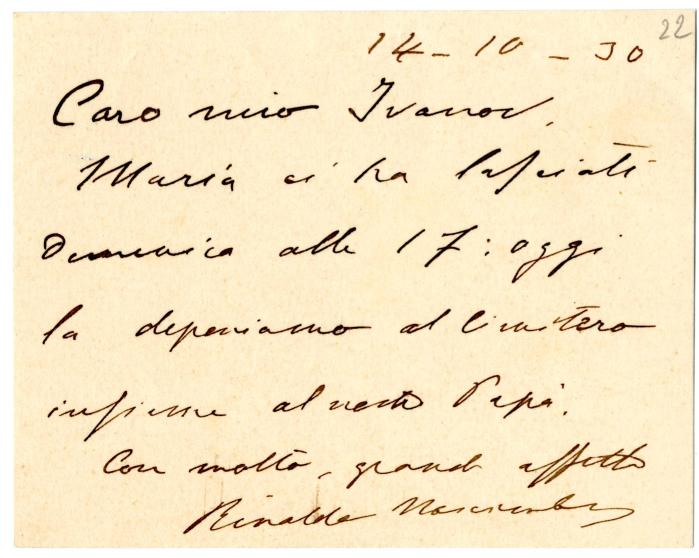 22
14-10-30
Caro mio Ivanov,
Maria ci ha lasciati
Domenica alle 17: oggi
la deponiamo al Cimitero
insieme al nostro Papà.
Con molto, grande affetto
Rinaldo Nascimbeni